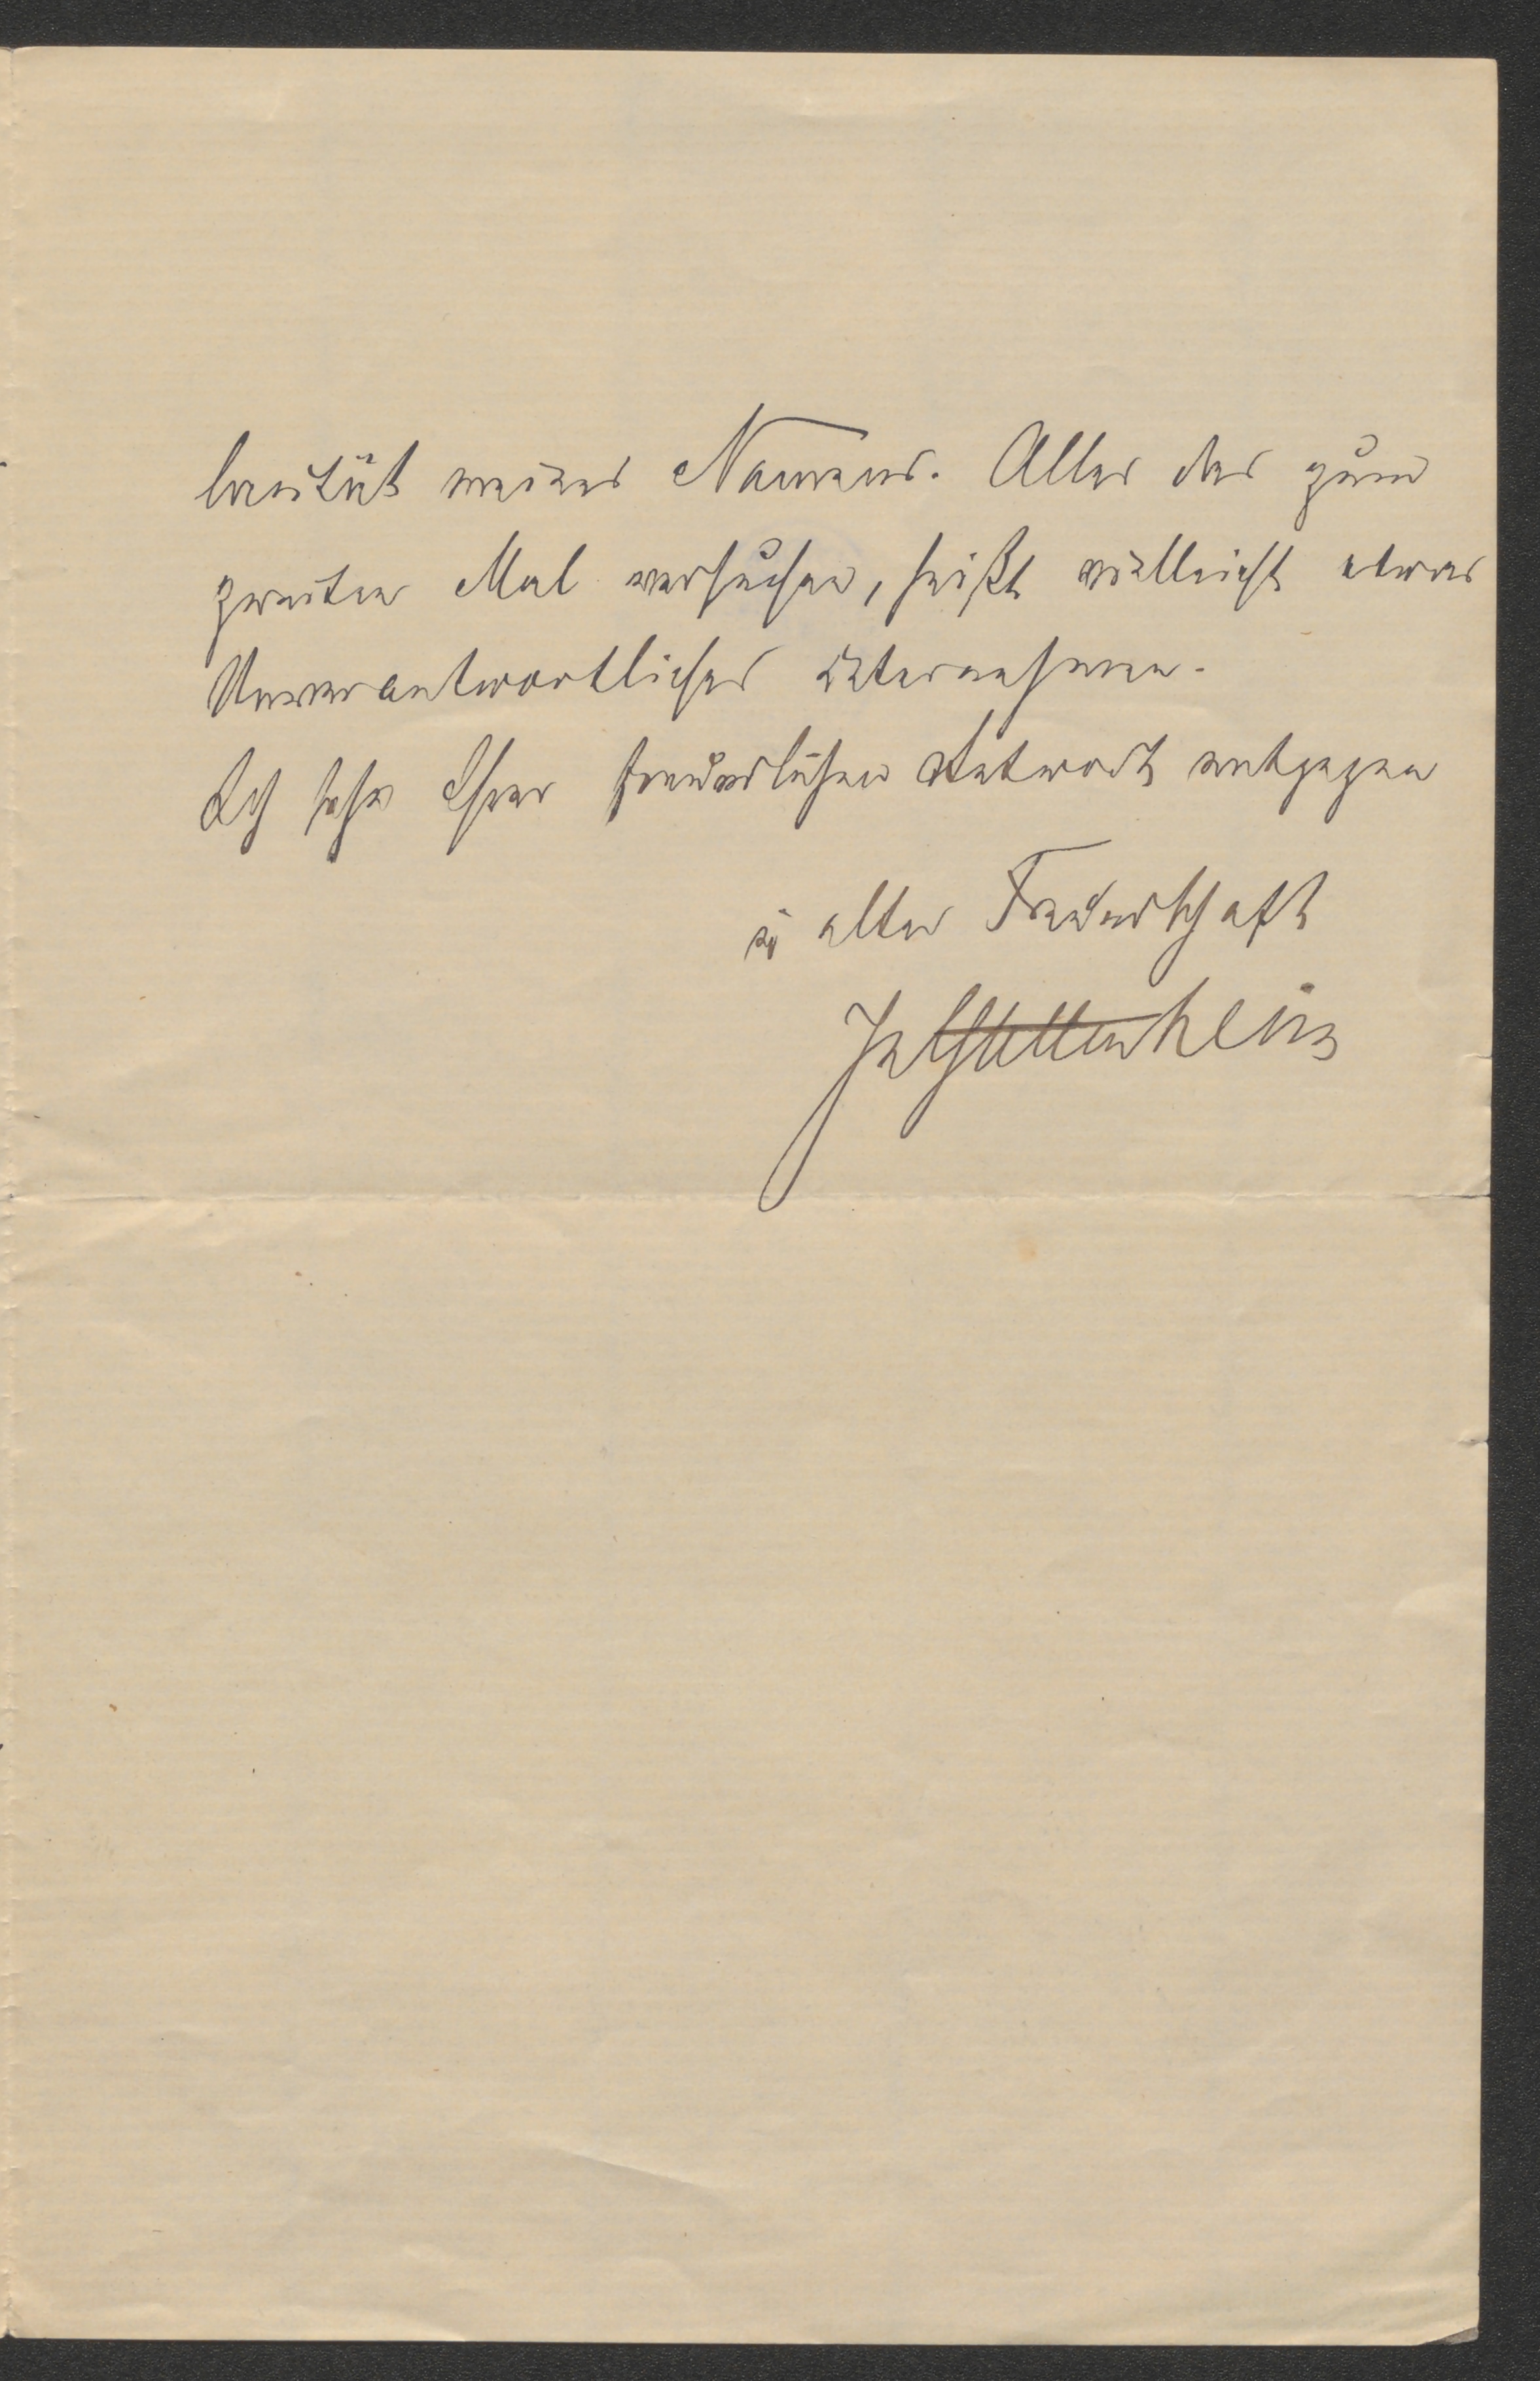 larität meines Namens. Alles das zum
zweiten Mal versuchen, heißt vielleicht etwas
Unverantwortliches unternehmen.
Ich sehe Ihrer freundlichen Antwort entgegen
in alter Freundschaft
JulStettenheim